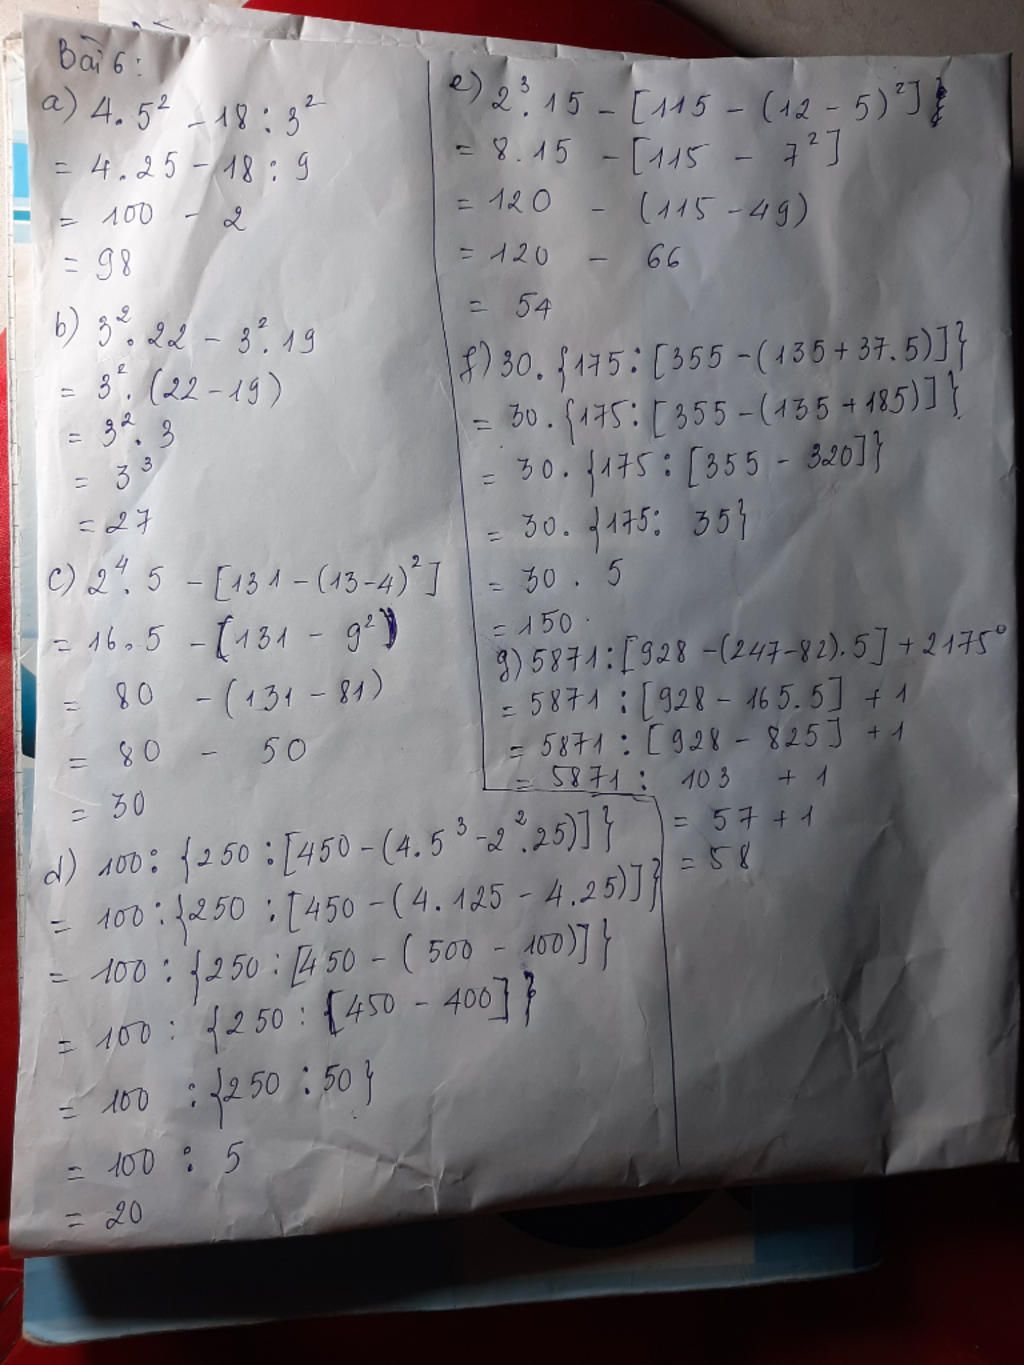 Bài 6:
a) 4.5² - 18 : 3²
= 4.25 - 18 : 9
= 100 - 2
= 98
b) 3².22 - 3².19
= 3².(22 - 19)
= 3².3
= 3³
= 27
c) 2⁴.5 - [131 - (13-4)²]
= 16.5 - [131 - 9²]
= 80 - (131 - 81)
= 80 - 50
= 30
d) 100 : {250 : [450 - (4.5³ - 2².25)]}
= 100 : {250 : [450 - (4.125 - 4.25)]}
= 100 : {250 : [450 - (500 - 100)]}
= 100 : {250 : [450 - 400]}
= 100 : {250 : 50}
= 100 : 5
= 20
e) 2³.15 - [115 - (12 - 5)²]
= 8.15 - [115 - 7²]
= 120 - (115 - 49)
= 120 - 66
= 54
f) 30.{175 : [355 - (135 + 37.5)]}
= 30.{175 : [355 - (135 + 185)]}
= 30.{175 : [355 - 320]}
= 30.{175 : 35}
= 30 . 5
= 150
g) 5871 : [928 - (247 - 82).5] + 2175⁰
= 5871 : [928 - 165.5] + 1
= 5871 : [928 - 825] + 1
= 5871 : 103 + 1
= 57 + 1
= 58